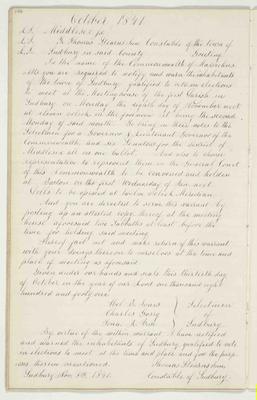 October 1841.
L.S. Middlesex ss.
L.S. To Thomas Stearns Constable of the town of
L.S. Sudbury in said County Greeting
In the name of the Commonwealth of Massachusetts
you are required to notify and warn the inhabitants
of the town of Sudbury qualified to vote in elections
to meet at the Meetinghouse of the first Parish in
Sudbury on Monday the eighth day of November next
at eleven o'clock in the forenoon it being the second
Monday of said month to bring in their votes to the
Selectmen for a Governor & Lieutenant Governor of the
Commonwealth and Senators for the district of
Middlesex all on one ballot. And also to choose
representative to represent them in the General Court
of this Commonwealth to be convened and holden
at Boston on the first Wednesday of Jan. next.
Polls to be opened at twelve o'clock Meridian.
And you are directed to serve this warrant by
posting up an attested copy thereof at the meeting
house aforesaid two Sabbaths at least before the
time for holding said meeting
Hereof fail not and make return of this warrant
with your doings thereon to ourselves at the time and
place of meeting as aforesaid
Given under our hands and seals this thirtieth day
of October in the year of our Lord one thousand eight
hundred and forty one.
Selectmen
Charles Gerry of
Sudbury
By virtue of the within warrant I have notified
and warned the inhabitants of Sudbury qualified to vote
in elections to meet at the time and place and for the purposes
therein mentioned. Thomas Stearns
Sudbury Nov. 8th, 1841. Constable of Sudbury